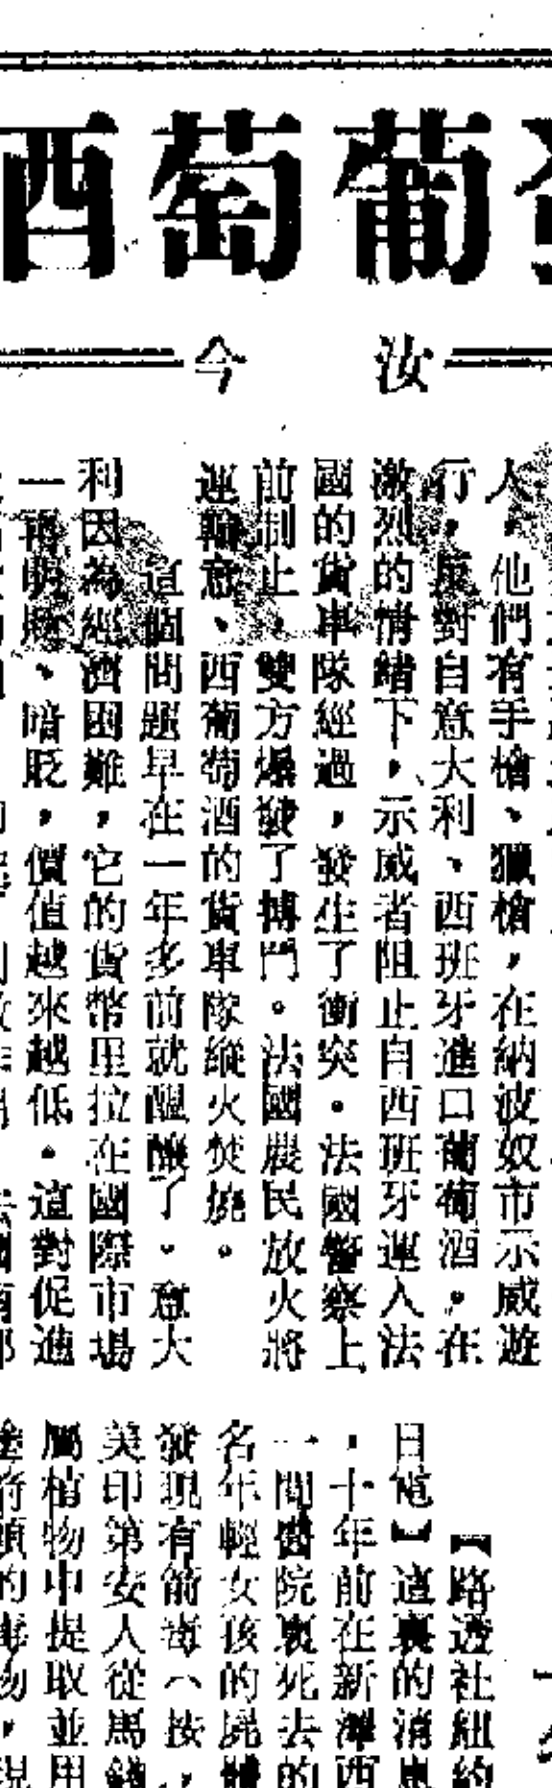 葡萄酒
汝今
人，他們有手槍、獵槍，在納波奴市示威遊
行，反對自意大利、西班牙進口葡萄酒。在
激烈的情緒下，示威者阻止自西班牙運入法
國的貨車隊經過，發生了衝突。法國警察上
前制止，雙方爆發了博鬥。法國農民放火將
運輸意、西葡萄酒的貨車隊縱火焚燒。
這個問題早在一年多前就醞釀了。意大
利因為經濟困難，它的貨幣里拉在國際市場
一再明貶、暗貶，價值越來越低。這對促進
【路透社紐約
日電】這裏的消息
，十年前在新澤西
一間醫院裏死去的
名年輕女孩的屍體
發現有箭毒（按，
美印第安人從馬錢
屬植物中提取並用